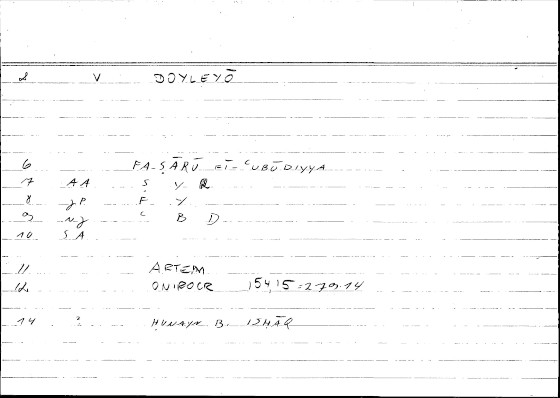 2 V DOYLEYŌ
6 FA-ṢĀRŪ FĪ-L-ʿUBŪDIYYA
7 AA Ṣ Y R
8 JP F Y
9 NJ ʿ B D
10 SA
11 ARTEM
12 ONIROCR 154,15=279.14
14 ḤUNAYN B. ISḤĀQ